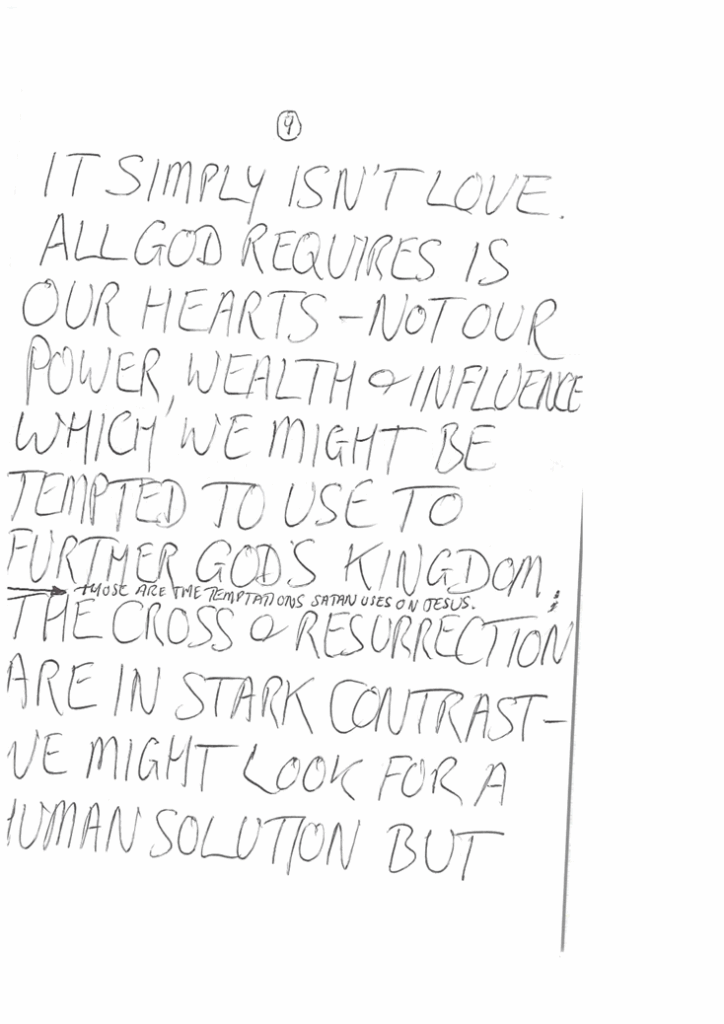 9
IT SIMPLY ISN'T LOVE.
ALL GOD REQUIRES IS
OUR HEARTS - NOT OUR
POWER, WEALTH & INFLUENCE
WHICH WE MIGHT BE
TEMPTED TO USE TO
FURTHER GOD'S KINGDOM;
THOSE ARE THE TEMPTATIONS SATAN USES ON JESUS.
THE CROSS & RESURRECTION
ARE IN STARK CONTRAST -
WE MIGHT LOOK FOR A
HUMAN SOLUTION BUT